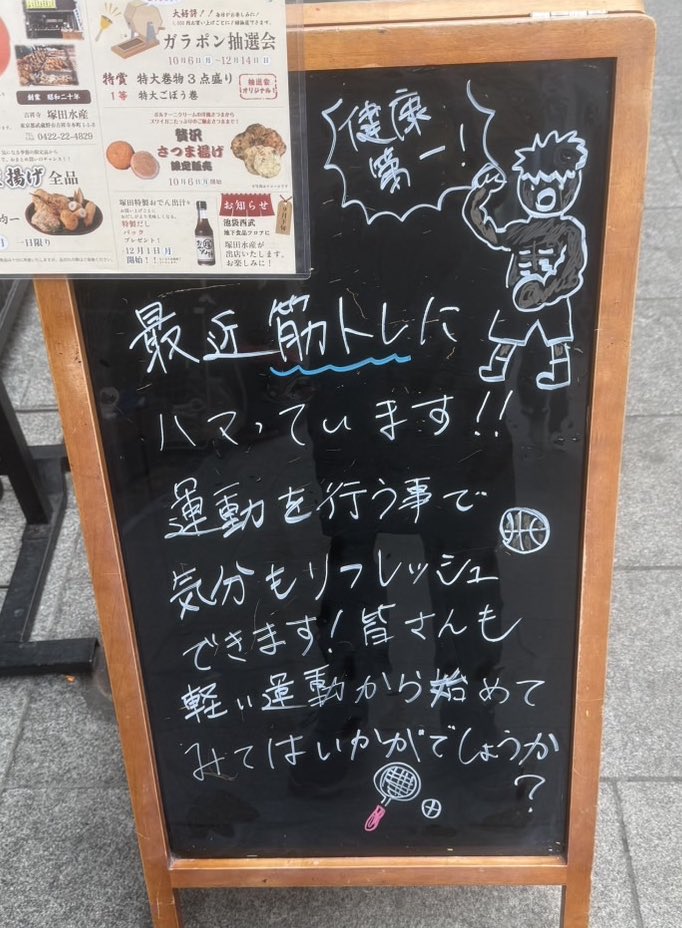 大好評!!
ガラポン抽選会
10月6日(月)~12月14日(日)
特賞 特大巻物3点盛り
1等 特大ごぼう巻
抽選会
オリジナル!
創業 昭和二十年
吉祥寺 塚田水産
0422-22-4829
贅沢
さつま揚げ
限定販売
10月6日(月)開始
揚げ 全品
一日限り
塚田特製おでん出汁
特製だし
パック
プレゼント!
12月1日(月)
開始!!
お知らせ
池袋西武
地下食品フロアに
塚田水産が
出店いたします。
お楽しみに!
健康
第一!
最近筋トレに
ハマっています!!
運動を行う事で
気分もリフレッシュ
できます!皆さんも
軽い運動から始めて
みてはいかがでしょうか
?